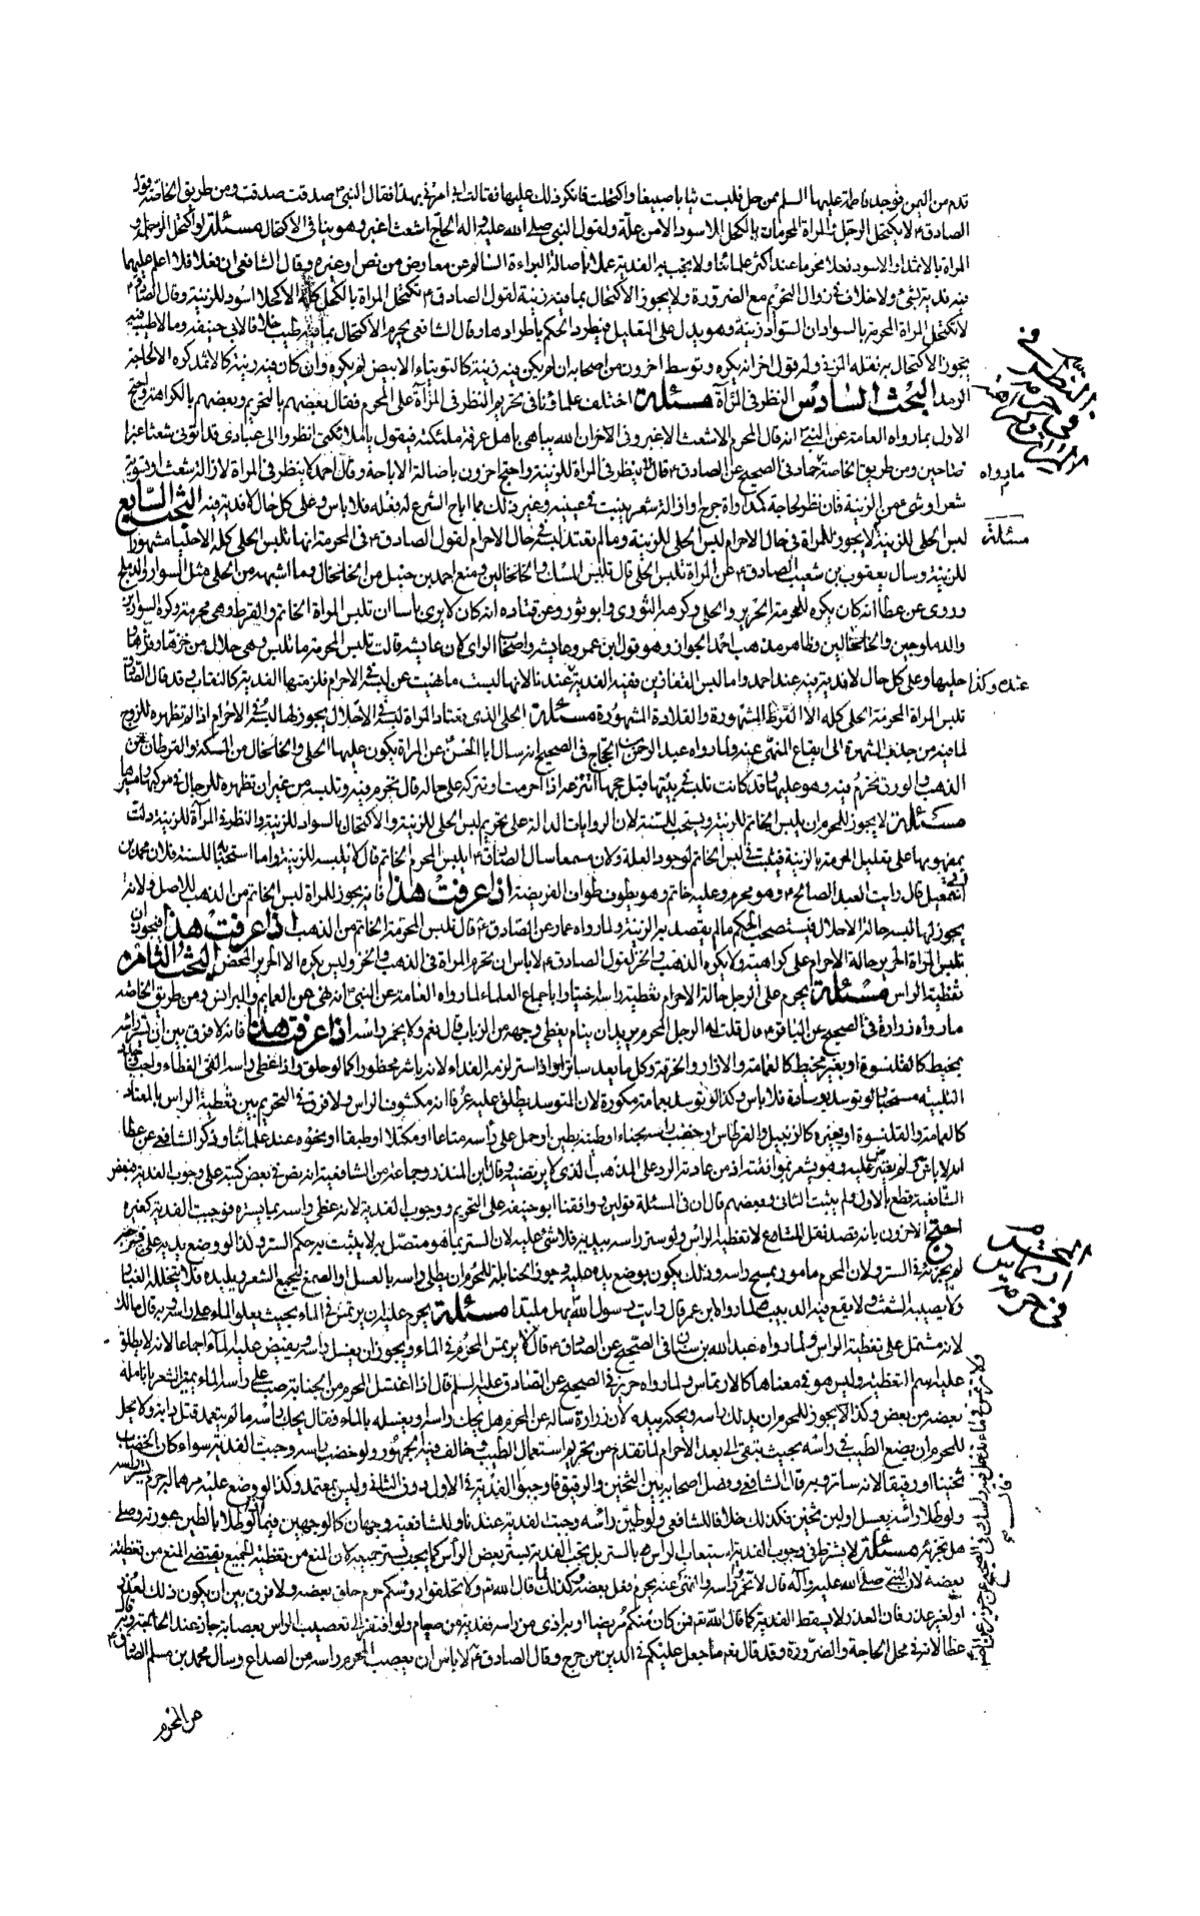 قدم من اليمن فوجد فاطمة عليها السلم ممن حل فلبست ثيابا صبيغا واكتحلت فانكر ذلك عليها فقالت ابي امرني بهذا فقال النبي ص صدقت صدقت ومن طريق الخاصة قول
الصادق ع لا يكتحل الرجل والمراة المحرمان بالكحل الاسود الا من علة ولقول النبي صلى الله عليه واله الحاج اشعث اغبر وهو ينافي الاكتحال مسئلة لو اكتحل الرجل او
المراة بالاثمد او الاسود فعلا محرما عند اكثر علمائنا ولا يجب به الفدية عملا باصالة البراءة السالم عن معارض من نص او غيره وقال الشافعي ان فعلا فلا اعلم عليهما
فيه فدية بشئ ولا خلاف في زوال التحريم مع الضرورة ولا يجوز الاكتحال بما فيه زينة لقول الصادق ع تكتحل المراة بالكحل كله الا كحلا اسود للزينة وقال الصادق ع
لا تكتحل المراة المحرمة بالسواد ان السواد زينة وهو يدل على التعليل فيطرد الحكم باطرادها وقال الشافعي يحرم الاكتحال بما فيه طيب خلافا لابي حنيفة وما لا طيب فيه
يجوز الاكتحال به نقله المزني وله قول اخر انه يكره وتوسط اخرون من اصحابه ان لم يكن فيه زينة كالتوتياء الابيض لم يكره وان كان فيه زينة كالاثمد كره الا لحاجة
الرمد البحث السادس النظر في المرآة مسئلة اختلف علماؤنا في تحريم النظر في المرآة على المحرم فقال بعضهم بالتحريم وبعضهم بالكراهة واحتج
الاول بما رواه العامة عن النبي ص انه قال المحرم الاشعث الاغبر وفي الاخر ان الله يباهي باهل عرفة ملئكته فيقول يا ملائكتي انظروا الى عبادي قد اتوني شعثا غبرا
ضاحين ومن طريق الخاصة حماد في الصحيح عن الصادق ع قال لا ينظر في المراة للزينة واحتج اخرون باصالة الاباحة وقال احمد لا ينظر في المراة لازالة شعث او تسوية
شعر او شئ من الزينة فان نظر لحاجة كمداواة جرح او ازالة شعر ينبت في عينيه وغير ذلك مما اباح الشرع له فعله فلا باس وعلى كل حال لا فدية فيه البحث السابع
لبس الحلي للزينة لا يجوز للمراة في حال الاحرام لبس الحلي للزينة وما لم يعتد لبسه في حال الاحرام لقول الصادق ع في المحرمة انها تلبس الحلي كله الا حليا مشهورا
للزينة وسال يعقوب بن شعيب الصادق ع عن المراة تلبس الحلي قال تلبس المسك والخلخالين ومنع احمد بن حنبل من الخلخال وما اشبهه من الحلي مثل السوار والدملج
وروى عن عطا انه كان يكره للمحرمة الحرير والحلي وكرهه الثوري وابو ثور وعن قتادة انه كان لا يرى باسا ان تلبس المراة الخاتم والقرط وهي محرمة وكره السوارين
والدملوجين والخلخالين وظاهر مذهب احمد الجواز وهو قول ابن عمر وعايشه واصحاب الراي لان عايشه قالت تلبس المحرمة ما تلبس وهي حلال من خزها وقزها و
حليها وعلى كل حال لا فدية فيه عند احمد واما لبس القفازين ففيه الفدية عندنا لانها لبست ما نهيت عن لبسه في الاحرام فلزمتها الفدية كالنقاب وقد قال الصادق ع
تلبس المراة المحرمة الحلي كله الا القرط المشهورة والقلادة المشهورة مسئلة الحلي الذي تعتاد المراة لبسه في الاحلال يجوز لها لبسه في الاحرام اذا لم تظهره للزوج
لما فيه من جلب الشهرة الى ايقاع المنهي عنه ولما رواه عبد الرحمن بن الحجاج في الصحيح انه سال ابا الحسن ع عن المراة يكون عليها الحلي والخلخال من المسكة والقرطان من
الذهب والورق تحرم فيه وهو عليها وقد كانت تلبسه في بيتها قبل حجها اتنزعه اذا احرمت او تتركه على حاله قال تحرم فيه وتلبسه من غير ان تظهره للرجال في مركبها ومسيرها
مسئلة لا يجوز للمحرم ان يلبس الخاتم للزينة ويستحب للسنة لان الروايات الدالة على تحريم لبس الحلي للزينة والاكتحال بالسواد للزينة والنظر في المرآة للزينة دلت
بمفهومها على تعليل الحرمة بالزينة فيثبت في لبس الخاتم لوجود العلة ولان مسمعا سال الصادق ع ايلبس المحرم الخاتم قال لا يلبسه للزينة واما استحبابه للسنة فلان محمد بن
اسمعيل قال رايت العبد الصالح ع وهو محرم وعليه خاتم وهو يطوف طواف الفريضة اذا عرفت هذا فانه يجوز للمراة لبس الخاتم من الذهب للاصل ولانه
يجوز لها لبسه حالة الاحلال فيستصحب الحكم ما لم يقصد به الزينة ولما رواه عمار عن الصادق ع قال تلبس المحرمة الخاتم من الذهب اذا عرفت هذا فيجوز ان
تلبس المراة الحرير حالة الاحرام على كراهية ولا يكره الذهب والخز لقول الصادق ع لا باس ان تحرم المراة في الذهب والخز وليس يكره الا الحرير المحض البحث الثامن
تغطية الراس مسئلة يحرم على الرجل حالة الاحرام تغطية راسه اختيارا باجماع العلماء لما رواه العامة عن النبي ص انه نهى عن العمايم والبرانس ومن طريق الخاصة
ما رواه زرارة في الصحيح عن الباقر ع قال قلت له الرجل المحرم يريد ان ينام يغطي وجهه من الذباب قال نعم ولا يخمر راسه اذا عرفت هذا فانه لا فرق بين ان يستر راسه
بمخيط كالقلنسوة او بغير مخيط كالعمامة والازار والخرقة وكل ما يعد ساترا واذا ستر لزمه الفداء لانه باشر محظورا كما لو حلق واذا غطى راسه القى الغطاء واجبا وجدد
التلبية مستحبا ولو توسد بوسادة فلا باس وكذا لو توسد بعمامة مكورة لان المتوسد يطلق عليه عرفا انه مكشوف الراس ولا فرق في التحريم بين تغطية الراس بالمعتاد
كالعمامة والقلنسوة او بغيره كالزنبيل والقرطاس او خضب راسه بحناء او طينه بطين او حمل على راسه متاعا او مكتلا او طبقا او نحوه عند علمائنا وذكر الشافعي عن عطا
انه لا باس به ولم يعترض عليه وهو يشعر بموافقته اذ من عادته الرد على المذهب الذي لا يرتضيه وقال ابن المنذر وجماعة من الشافعية انه نص في بعض كتبه على وجوب الفدية فبعض
الشافعية قطع بالاول ولم يثبت الثاني وبعضهم قال ان في المسئلة قولين ووافقنا ابو حنيفة على التحريم ووجوب الفدية لانه غطى راسه بما يستره فوجبت الفدية كغيره
احتج الاخرون بانه قصد نقل المتاع لا تغطية الراس ولو ستر راسه بيديه فلا شئ عليه لان الستر بما هو متصل به لا يثبت به حكم الستر وكذا لو وضع يديه على فرجه
لم يجزئه في الستر ولان المحرم مامور بمسح راسه وذلك يكون بوضع يده عليه وجوز الحنابلة للمحرم ان يطلي راسه بالعسل والصمغ ليجمع الشعر ويلبده فلا يتخلله الغبار
ولا يصيبه الشعث ولا يقع فيه الدبيب لما رواه ابن عمر قال رايت رسول الله يهل ملبدا مسئلة يحرم عليه ان يرتمس في الماء بحيث يعلو الماء على راسه وبه قال مالك
لانه مشتمل على تغطية الراس ولما رواه عبد الله بن سنان في الصحيح عن الصادق ع قال لا يرتمس المحرم في الماء ويجوز ان يغسل راسه ويفيض عليه الماء اجماعا لانه لا يطلق
عليه اسم التغطية وليس هو في معناها كالارتماس ولما رواه حريز في الصحيح عن الصادق عليه السلم قال اذا اغتسل المحرم من الجنابة صب على راسه الماء يميز الشعر بانامله
بعضه من بعض وكذا لا يجوز للمحرم ان يدلك راسه ويحكه بيده لان زرارة ساله عن المحرم هل يحك راسه او يغسله بالماء فقال يحك راسه ما لم يتعمد قتل دابة ولا يحل
للمحرم ان يضع الطيب في راسه بحيث تبقى الى بعد الاحرام لما تقدم من تحريم استعمال الطيب وخالف فيه الجمهور ولو خضب راسه وجبت الفدية سواء كان الخضاب
ثخينا او رقيقا لانه ساتر وبه قال الشافعي وفصل اصحابه بين الثخين والرقيق فاوجبوا الفدية في الاول دون الثاني وليس بمعتمد وكذا لو وضع عليه مرهما له جرم يستر راسه
ولو طلا راسه بعسل او لبن ثخين فكذلك خلافا للشافعي ولو طين راسه وجبت الفدية عندنا وللشافعية وجهان كالوجهين فيما لو طلا بالطين عورته وصلى
هل تجزئه مسئلة لا يشترط في وجوب الفدية استيعاب الراس بالستر بل يجب الفدية بستر بعض الراس كما يجب بستر جميعه لان المنع من تغطية الجميع يقتضي المنع من تغطية
بعضه لان النبي صلى الله عليه واله قال لا تخمروا راسه والنهي عنه يحرم فعل بعضه وكذلك لما قال الله تعالى ولا تحلقوا رؤسكم حرم حلق بعضه ولا فرق بين ان يكون ذلك لعذر
او لغير عذر فان العذر لا يسقط الفدية كما قال الله تعالى فمن كان منكم مريضا او به اذى من راسه ففدية من صيام ولو افتقر الى تعصيب الراس بعصابة جاز عند الحاجة وبه قال
عطا لانه في محل الحاجة والضرورة وقد قال تعالى ما جعل عليكم في الدين من حرج وقال الصادق ع لا باس ان يعصب المحرم راسه من الصداع وسال محمد بن مسلم الصادق ع
عن المحرم
ما رواه
مسئلة
عنده وكذا